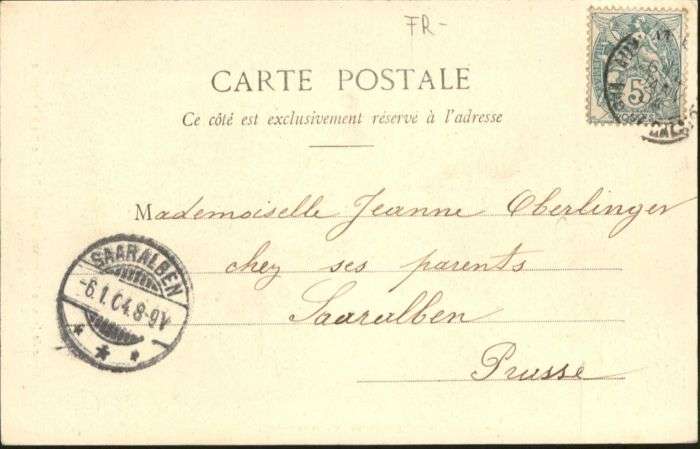 FR-
CARTE POSTALE
Ce côté est exclusivement réservé à l'adresse
5
POSTES
Mademoiselle Jeanne Oberlinger
chez ses parents
Saaralben
Prusse
SAARALBEN
-6.1.04.8-9V